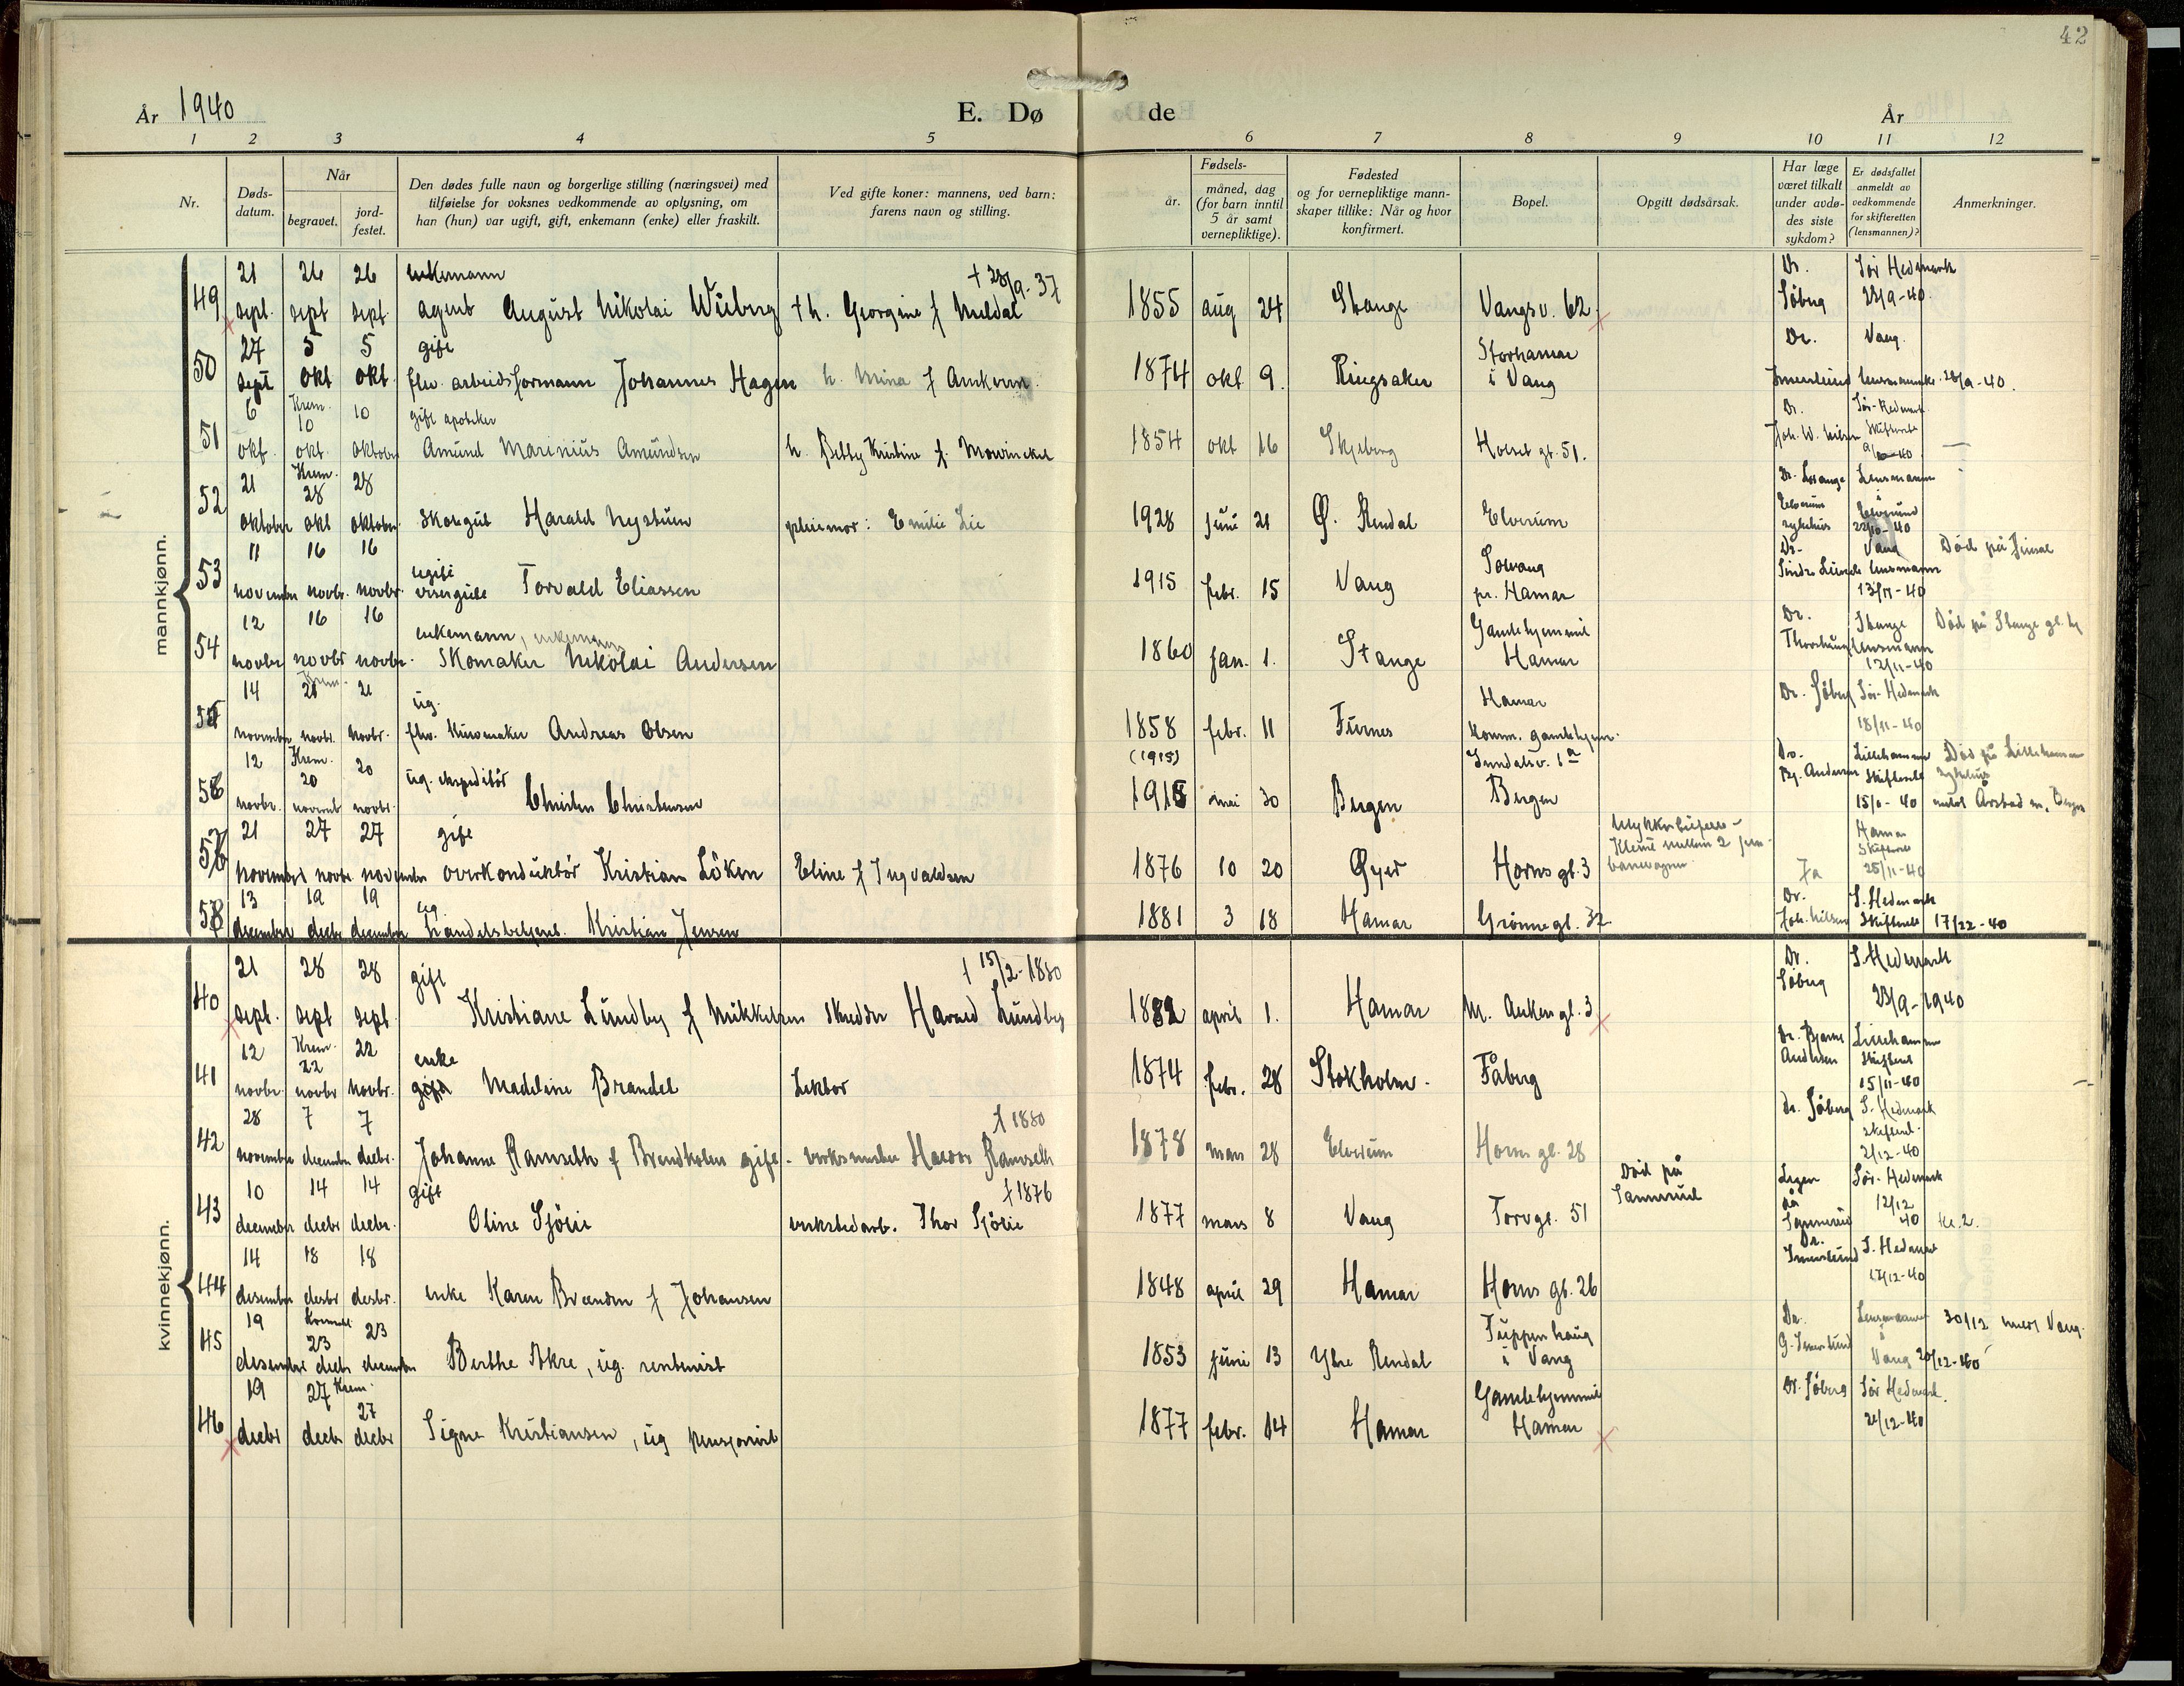 42
År 1940 E. Dø de År
1 2 3 4 5 6 7 8 9 10 11 12
Nr.
Døds-
datum.
Når
begravet.
jord-
festet.
Den dødes fulle navn og borgerlige stilling (næringsvei) med
tilføielse for voksnes vedkommende av oplysning, om
han (hun) var ugift, gift, enkemann (enke) eller fraskilt.
Ved gifte koner: mannens, ved barn:
farens navn og stilling.
Fødsels-
år.
måned, dag
(for barn inntil
5 år samt
vernepliktige).
Fødested
og for vernepliktige mann-
skaper tillike: Når og hvor
konfirmert.
Bopel.
Opgitt dødsårsak.
Har læge
været tilkalt
under avdø-
des siste
sykdom?
Er dødsfallet
anmeldt av
vedkommende
for skifteretten
(lensmannen)?
Anmerkninger.
mannkjønn.
21 26 26 enkemann † 28/9-37 Dr. Sør Hedmark
49 sept. sept sept. agent August Nikolai Wiiberg + h. Georgine f Muldal 1855 aug 24 Stange Vangsv. 62 Søberg 23/9-40.
27 5 5 gift Storhamar Dr. Vang.
50 sept okt okt. fhv. arbeidsformann Johannes Hagen h. Mina f Ankerm. 1874 okt 9. Ringsaker i Vang Imerslund lensmannsk. 28/9-40.
6 Krem. 10 10 gift apoteker Dr. Sør-Hedmark
51 okt. okt. oktober Amund Marinius Amundsen h. Betty Kristine f. Mowinckel 1854 okt 16 Skjeberg Holset gt. 51. Joh. W. Nilsen Skifterett
21 Krem. 28 28 Dr. Lensmann
52 oktober okt oktober. Skolegut Harald Nystuen pleiemor: Emilie Lie 1928 juni 21 Ø. Rendal Elverum Elverum sykehus i Elverum 22/10-40
11 16 16 ugift Solvang Dr. Vang
53 november novbr. novbr. visergutt Torvald Eliassen 1915 febr. 15 Vang pr. Hamar lensmann 13/11-40 Død på
12 16 16 enkemann, enkemann Gamlehjemmet Dr. Stange Død på Stange gl. hj
54 novbr. novbr novbr. Skomaker Nikolai Andersen 1860 jan. 1. Stange Hamar lensmann 12/11-40
14 Krem. 21 21 ug. Hamar Dr. Søberg Sør-Hedmark
55 november novbr. novbr. fhv. Andreas Olsen 1858 febr. 11 Furnes komm. gamlehjem. 18/11-40
12 Krem. 20 20 ug. ekspeditör (1915) Dr. Lillehammer Død på Lillehammer
56 novbr. novemb novbr. Christen Christensen 1915 mai 30 Bergen Bergen Bj. Andersen Skifterett sykehus
15/11-40 Årstad m. Bergen
21 27 27 gift Ulykkestilfelle - Hamar
57 november novbr. november overkonduktör Kristian Löken Eline f Ingvaldsen 1876 10 20 Øyer Horns gt. 3 Klemt mellem 2 jern- banevogner. Ja Skifterett 25/11-40
13 19 19 ug Dr. S. Hedmark
58 december decbr december handelsbetjent. Kristian Jensen 1881 3 18 Hamar Grönnegt. 32 Joh. Nilsen Skifterett 17/22-40
kvinnekjønn.
21 28 28 gift f 15/2-1880 Dr. S. Hedmark
40 sept. sept sept. Kristiane Lundby f Mikkelsen skredder Harald Lundby 1882 april 1. Hamar N. Ankergt. 3 Söberg 23/9-1940
12 Krem. 22 22 enke Dr. Bjarne Lillehammer
41 novbr. novbr novbr. gift Madeleine Brandel Lektor 1874 febr. 28 Stokholm. Fåberg Andersen Skifterett
15/11-40
28 7 7 f 1880 Dr. Söberg S. Hedmark
42 november december decbr. Johanne Ramseth f Brendholen gift - verksmester Ramseth 1878 mars 28 Elverum Horns gt. 28 skifteret. 2/12-40
10 14 14 gift f 1876 Død på Legen Sør-Hedmark
43 december decbr decbr. Oline Sjölie verkstedarb. Thor Sjölie 1877 mars 8 Vang Torvgt. 51 Sannerud på Sannerud 12/12 40 kl. 2.
14 18 18 Dr. S. Hedmark
44 desember desbr desbr. enke Karen Breenden f Johansen 1848 april 29 Hamar Horns gt. 26 Imerslund 17/12-40
19 Kremert 23 23 Dr. Lensmannen 30/12 Vang.
45 desember decbr december Berthe Akre, ug. rentenist 1853 juni 13 Ytre Rendal i Vang G. Imerslund i Vang 20/12-40
19 27 Krem. 27 Gamlehjemmet Dr. Søberg Sør Hedmark.
46 decbr decbr decbr Signe Kristiansen, ug pensjonist 1877 febr. 14 Hamar Hamar 21/12-40